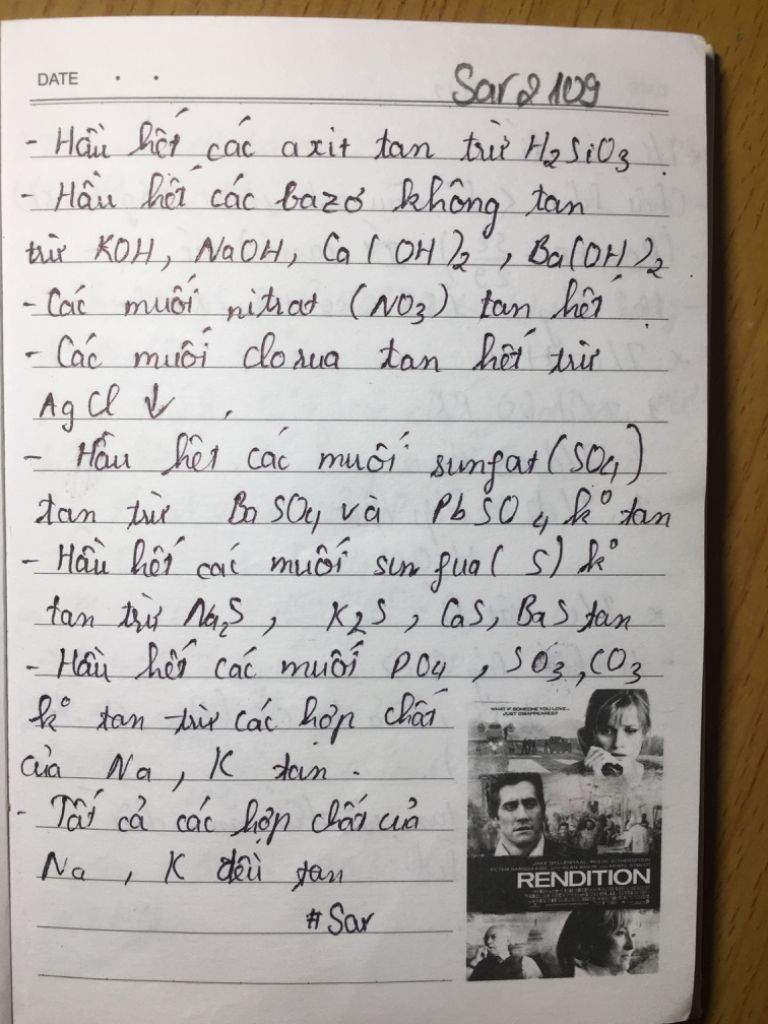 DATE
Sar2109
- Hầu hết các axit tan trừ H₂SiO₃
- Hầu hết các bazơ không tan
trừ KOH, NaOH, Ca(OH)₂, Ba(OH)₂
- Các muối nitrat (NO₃) tan hết
- Các muối clorua tan hết trừ
AgCl ↓.
- Hầu hết các muối sungat (SO₄)
tan trừ BaSO₄ và PbSO₄ k° tan
- Hầu hết các muối sunfua (S) k°
tan trừ Na₂S, K₂S, CaS, BaS tan
- Hầu hết các muối PO₄, SO₃, CO₃
k° tan trừ các hợp chất
của Na, K tan.
- Tất cả các hợp chất của
Na, K đều tan
#Sar
WHAT IF SOMEONE YOU LOVE...
JUST DISAPPEARED?
JAKE GYLLENHAAL REESE WITHERSPOON
PETER SARSGAARD ALAN ARKIN MERYL STREEP
RENDITION